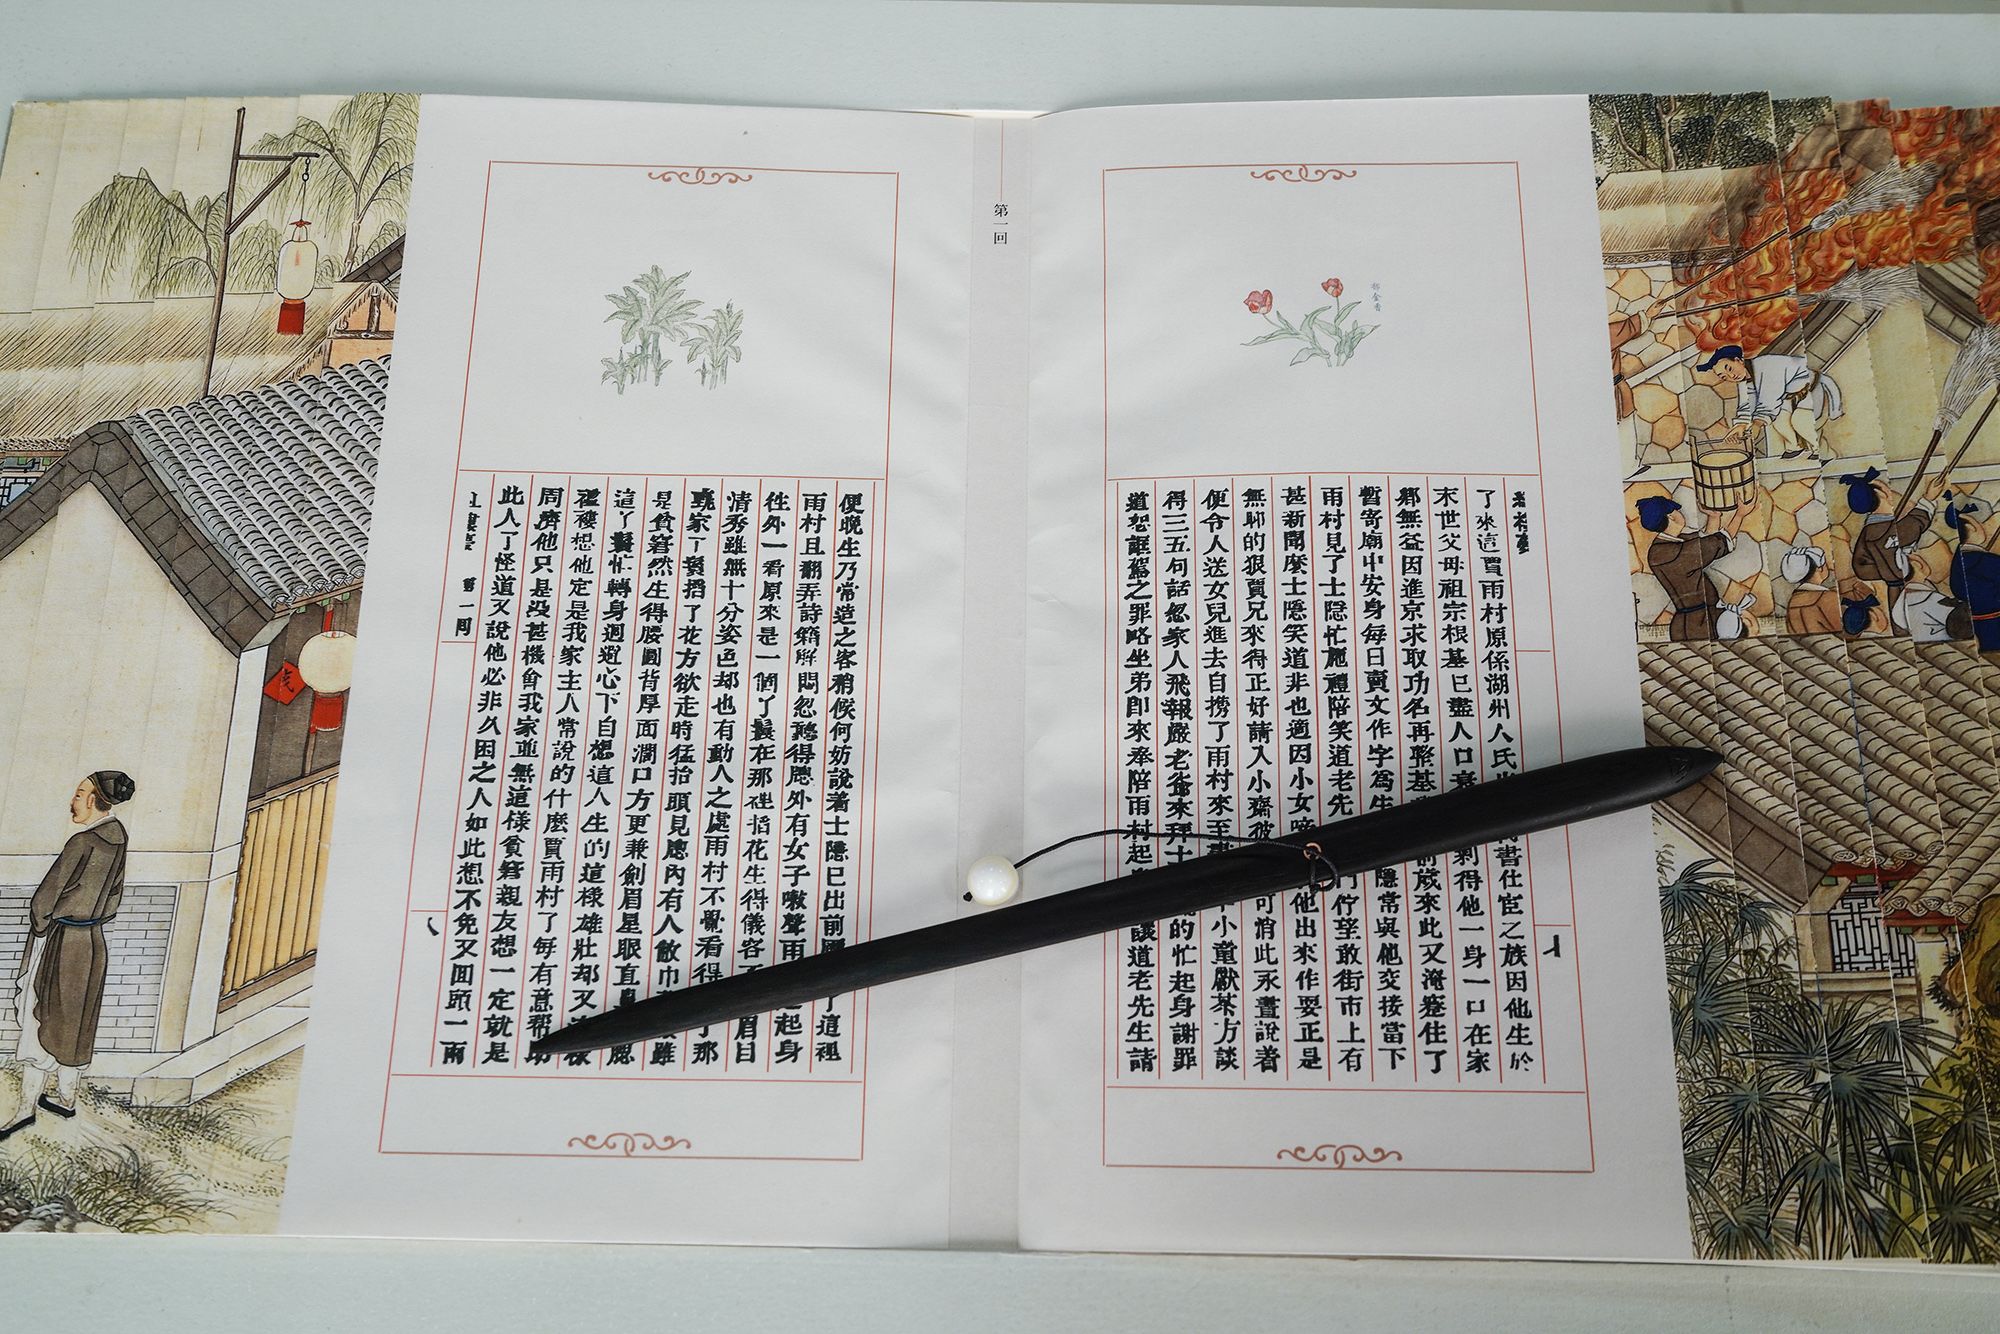 了來這賈雨村原係湖州人氏也書仕宦之族因他生於
末世父母祖宗根基已盡人口衰剩得他一身一口在家
鄉無益因進京求取功名再整基前歲來此又淹蹇住了
暫寄廟中安身每日賣文作字為生隱常與他交接當下
雨村見了士隱忙施禮陪笑道老先門佇望敢街市上有
甚新聞麼士隱笑道非也適因小女啼他出來作耍正是
無聊的狠賈兄來得正好請入小齋彼可消此永晝說着
便令人送女兒進去自携了雨村來至書中小童獻茶方談
得三五句話忽家人飛報嚴老爺來拜士的忙起身謝罪
道恕誆駕之罪略坐弟即來奉陪雨村起讓道老先生請
郁金香
第一回
便晚生乃常造之客稍候何妨說着士隱已出前廳了這裡
雨村且翻弄詩籍解悶忽聽得窗外有女子嗽聲雨起身
徃外一看原來是一個丫鬟在那裡掐花生得儀容不眉目
清秀雖無十分姿色却也有動人之處雨村不覺看得了那
甄家丫鬟掐了花方欲走時猛抬頭見窗內有人敝巾雖
是貧窘然生得腰圓背厚面濶口方更兼劍眉星眼直鼻腮
這丫鬟忙轉身迴避心下自想這人生的這樣雄壯却又樣
襤褸想他定是我家主人常說的什麽賈雨村了每有意幫助
周濟他只是没甚機會我家並無這樣貧窘親友想一定就是
此人了怪道又說他必非久困之人如此想不免又回頭一兩
第一回
八